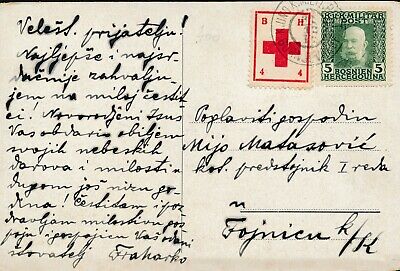 Velešt. prijatelju!
Najljepše i najsr-
dačnije zahvalju-
jem na miloj čestit-
ci! Novorodjeni Isus
Vas obdario obiljem
svojih nebeskih
darova i milosti u
dugom još nizu go-
dina! Čestitam i poz-
dravljam milostivu gos-
poju i gospojicu Vaš odani
štovatelj
B H
4 4
K.u.K. MILITÄR
POST
5 5
BOSNIEN
HERCEGOVINA
Poglaviti gospodin
Mijo Matasović
kot. predstojnik I reda
u
Fojnicu